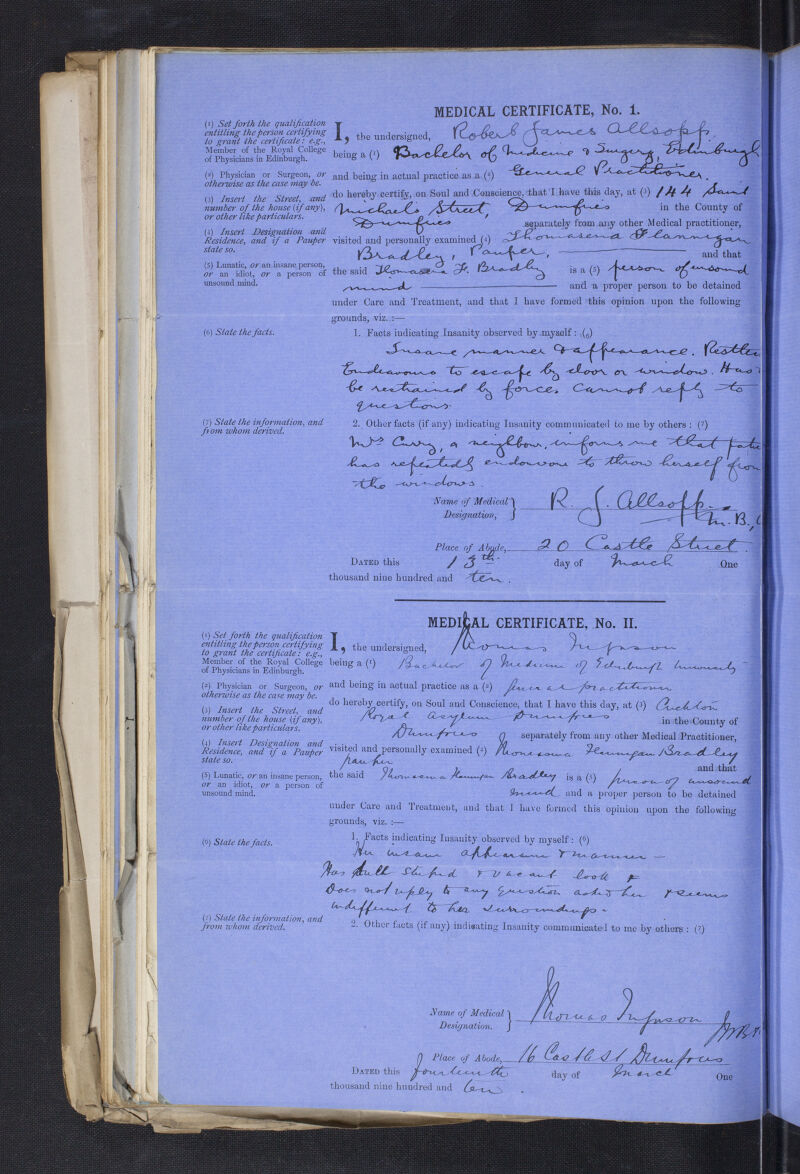 MEDICAL CERTIFICATE, No. 1.
(1) Set forth the qualification
entitling the person certifying
to grant the certificate: e.g.,
Member of the Royal College
of Physicians in Edinburgh.
(2) Physician or Surgeon, or
otherwise as the case may be.
(3) Insert the Street, and
number of the house (if any),
or other like particulars.
(4) Insert Designation and
Residence, and if a Pauper
state so.
(5) Lunatic, or an insane person,
or an idiot, or a person of
unsound mind.
(6) State the facts.
(7) State the information, and
from whom derived.
I, the undersigned, Robert James Allsopp,
being a (1) Bachelor of Medicine & Surgery, Edinburgh
and being in actual practice as a (2) General Practitioner,
do hereby certify, on Soul and Conscience, that I have this day, at (3) 144 Saint
Michaels Street, Dumfries in the County of
Dumfries separately from any other Medical practitioner,
visited and personally examined (4) Thomasena Flannigan
Bradley, Pauper, and that
the said Thomasena F. Bradley is a (5) person of unsound
mind and a proper person to be detained
under Care and Treatment, and that I have formed this opinion upon the following
grounds, viz. :—
1. Facts indicating Insanity observed by myself : (6)
Insane manner & appearance. Restless
Endeavours to escape by door or window. Has
be restrained by force. Cannot reply to
questions
2. Other facts (if any) indicating Insanity communicated to me by others : (7)
Mrs Curry, a neighbour, informs me that
has repeatedly endeavours to throw herself from
the windows.
Name of Medical
Designation, R. J. Allsopp.
M.B.,
Place of Abode, 20 Castle Street.
DATED this 13th day of March One
thousand nine hundred and ten.
MEDICAL CERTIFICATE, No. II.
(1) Set forth the qualification
entitling the person certifying
to grant the certificate: e.g.,
Member of the Royal College
of Physicians in Edinburgh.
(2) Physician or Surgeon, or
otherwise as the case may be.
(3) Insert the Street, and
number of the house (if any),
or other like particulars.
(4) Insert Designation and
Residence, and if a Pauper
state so.
(5) Lunatic, or an insane person,
or an idiot, or a person of
unsound mind.
(6) State the facts.
(7) State the information, and
from whom derived.
I, the undersigned, Thomas
being a (1) Bachelor of Medicine of Edinburgh University
and being in actual practice as a (2) general practitioner
do hereby certify, on Soul and Conscience, that I have this day, at (3) Crichton
Royal Asylum Dumfries in the County of
Dumfries separately from any other Medical Practitioner,
visited and personally examined (4) Thomasena Flannigan Bradley
pauper and that
the said Thomasena Flannigan Bradley is a (5) person of unsound
mind and a proper person to be detained
under Care and Treatment, and that I have formed this opinion upon the following
grounds, viz. :—
1. Facts indicating Insanity observed by myself : (6)
Her insane appearance & manner –
Has dull stupid & vacant look &
Does not reply to any question asked her & seems
indifferent to her surroundings.
2. Other facts (if any) indicating Insanity communicated to me by others : (7)
Name of Medical
Designation. Thomas
Place of Abode, 16 Castle St Dumfries
DATED this fourteenth day of March One
thousand nine hundred and ten.